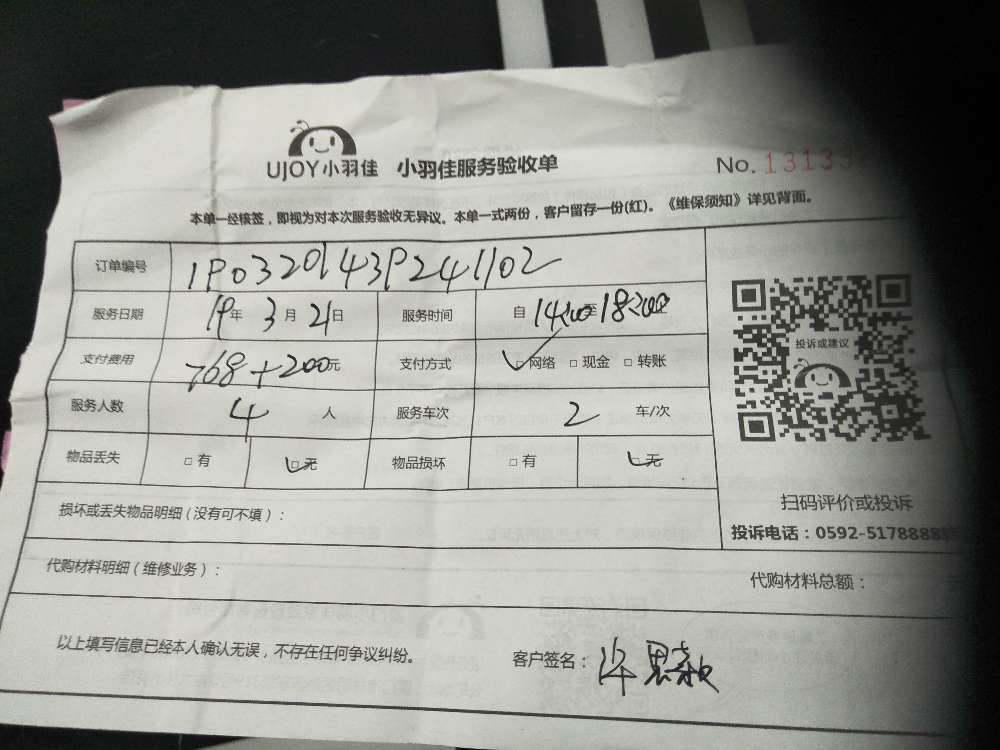 UJOY小羽佳 小羽佳服务验收单 No. 13133
本单一经核签，即视为对本次服务验收无异议。本单一式两份，客户留存一份(红)。《维保须知》详见背面。
订单编号 1903201439241102
服务日期 19年 3月 21日 服务时间 自 14:00 至 18:00
支付费用 768+200元 支付方式 ☑网络 □现金 □转账
服务人数 4 人 服务车次 2 车/次
物品丢失 □有 ☑无 物品损坏 □有 ☑无
投诉或建议
扫码评价或投诉
投诉电话：0592-5178888
损坏或丢失物品明细（没有可不填）：
代购材料明细（维修业务）： 代购材料总额：
以上填写信息已经本人确认无误，不存在任何争议纠纷。 客户签名：